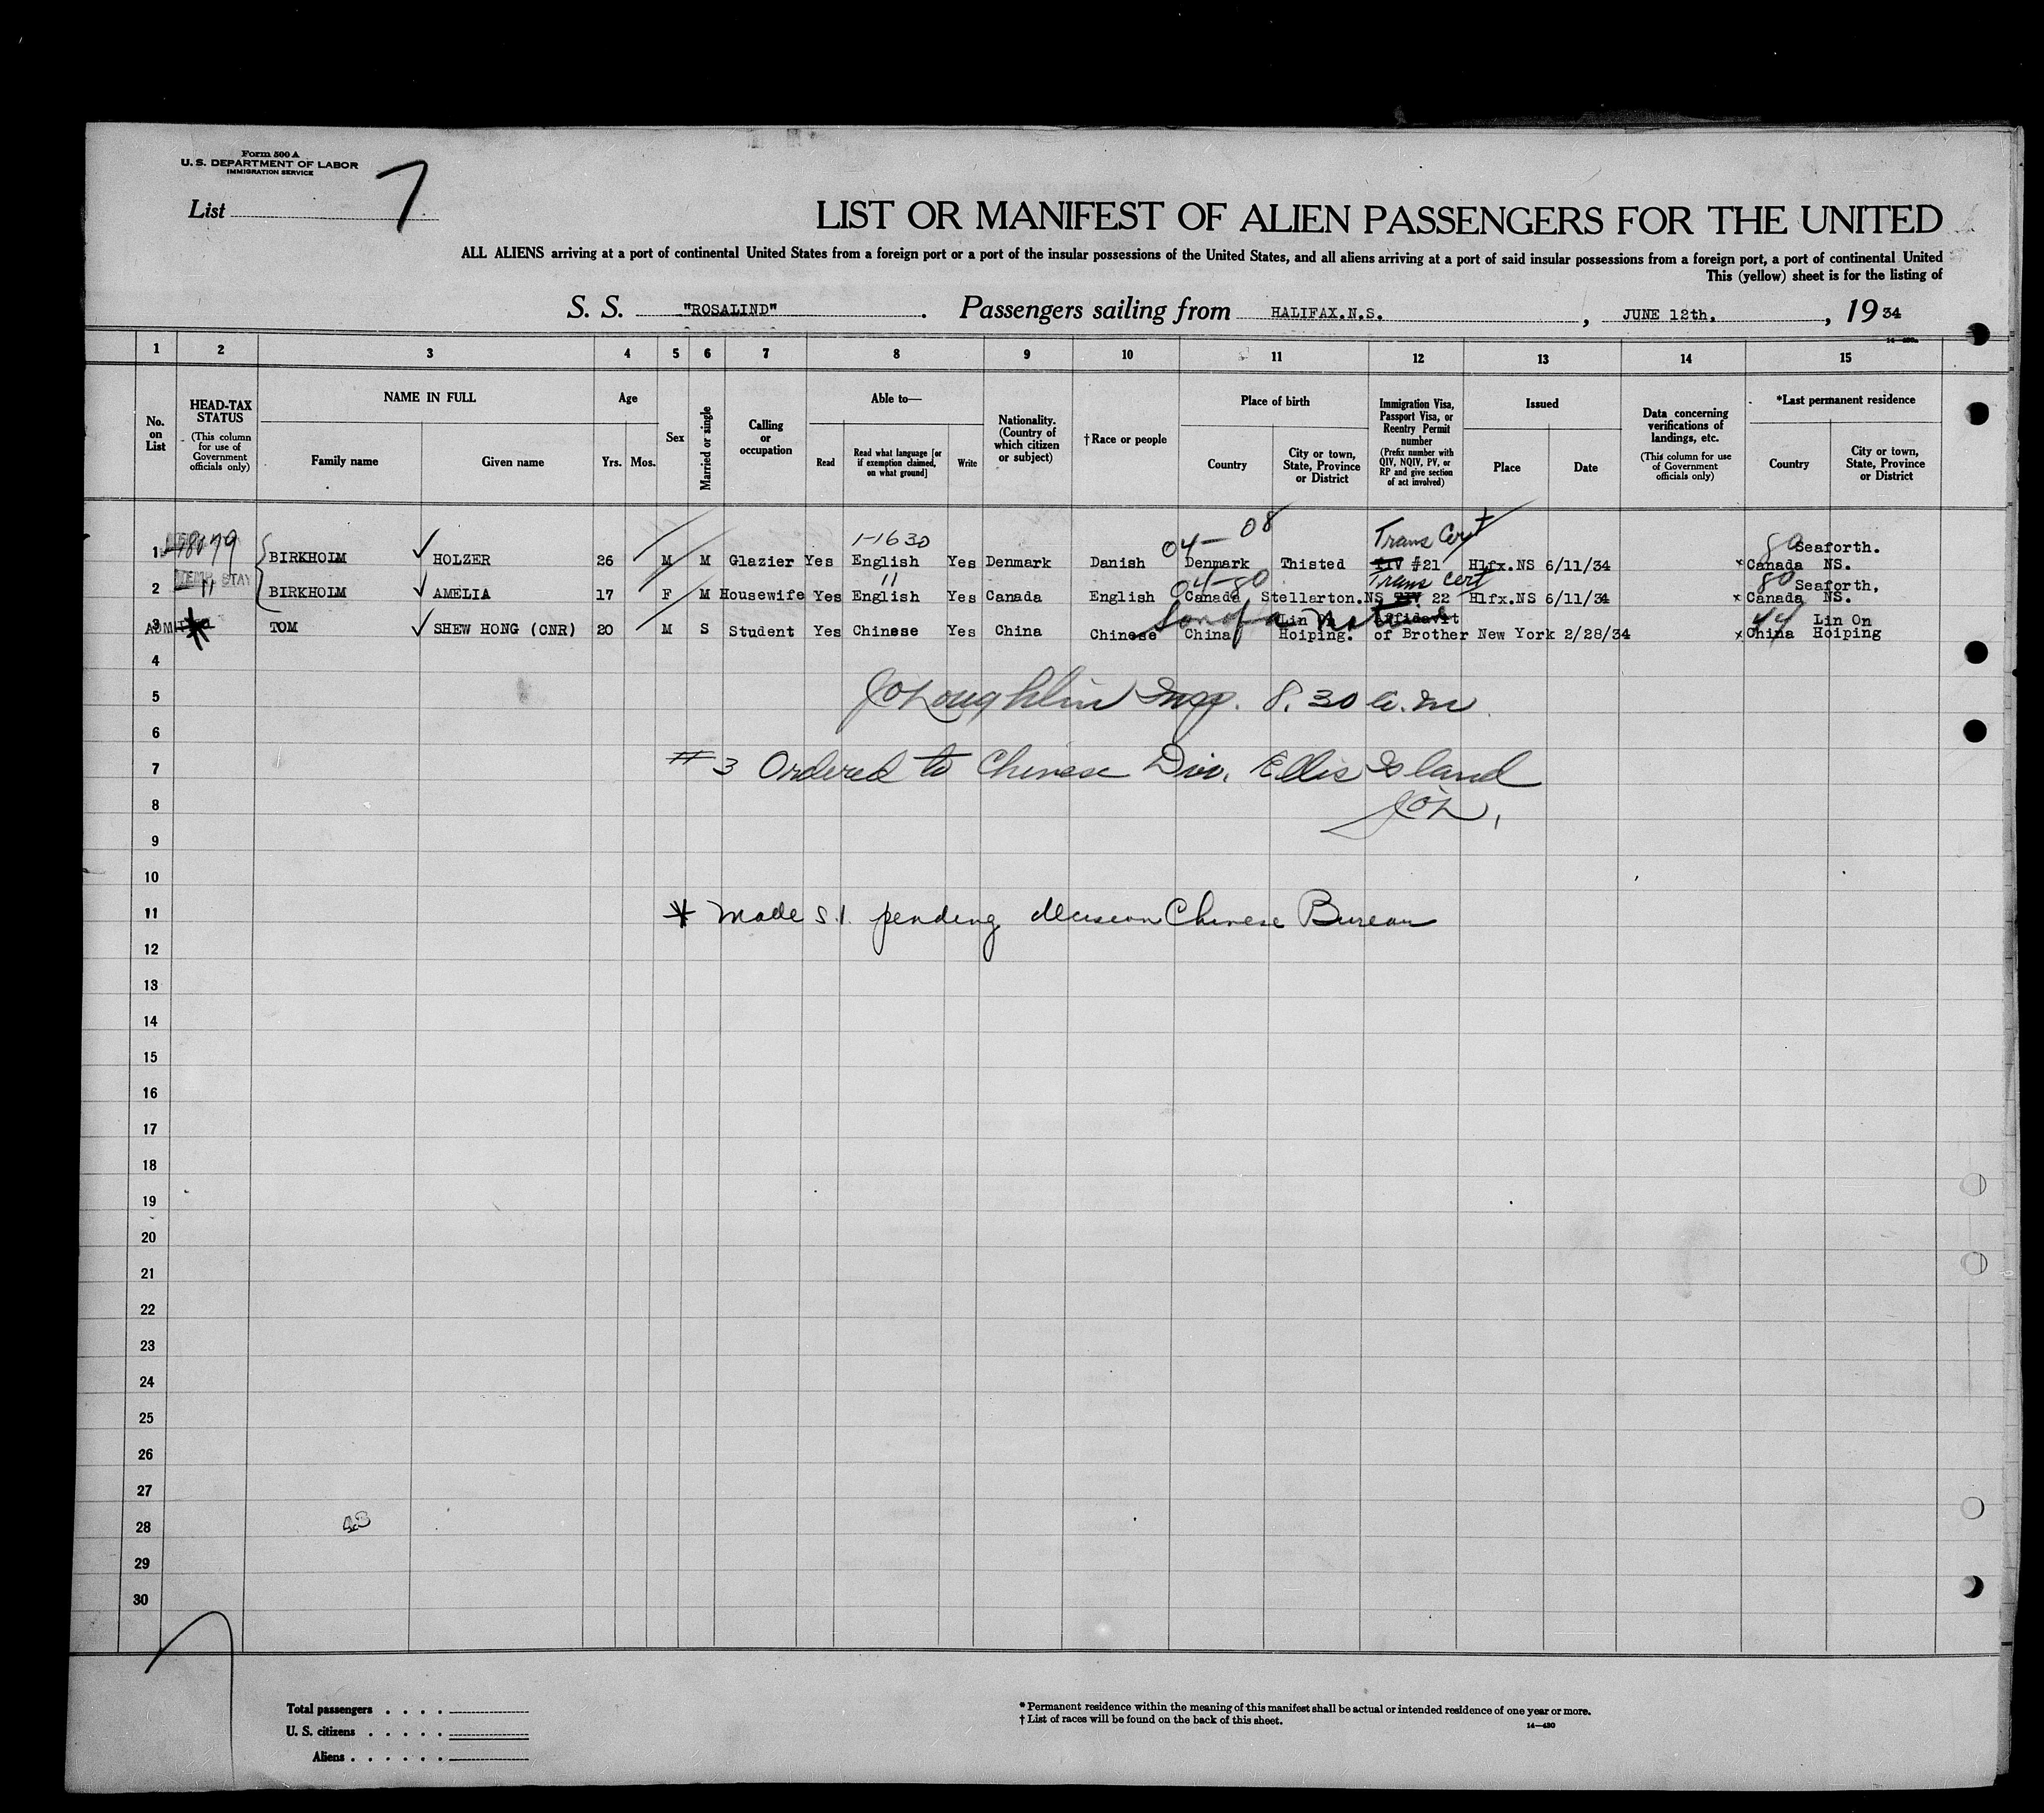 Form 500 A
U. S. DEPARTMENT OF LABOR
IMMIGRATION SERVICE
List 7
LIST OR MANIFEST OF ALIEN PASSENGERS FOR THE UNITED
ALL ALIENS arriving at a port of continental United States from a foreign port or a port of the insular possessions of the United States, and all aliens arriving at a port of said insular possessions from a foreign port, a port of continental United
This (yellow) sheet is for the listing of
S. S. "ROSALIND". Passengers sailing from HALIFAX.N.S., JUNE 12th., 19 34
1 2 3 4 5 6 7 8 9 10 11 12 13 14 15
No. on List
HEAD-TAX STATUS
(This column for use of Government officials only)
NAME IN FULL
Family name
Given name
Age
Yrs. Mos.
Sex
Married or single
Calling or occupation
Able to—
Read
Read what language [or if exemption claimed, on what ground]
Write
Nationality. (Country of which citizen or subject)
†Race or people
Place of birth
Country
City or town, State, Province or District
Immigration Visa, Passport Visa, or Reentry Permit number
(Prefix number with QIV, NQIV, PV, or RP and give section of act involved)
Issued
Place
Date
Data concerning verifications of landings, etc.
(This column for use of Government officials only)
*Last permanent residence
Country
City or town, State, Province or District
1-1630 04- 08 Trans Cert 80 Seaforth.
1 BIRKHOLM HOLZER 26 M M Glazier Yes English Yes Denmark Danish Denmark Thisted #21 Hlfx.NS 6/11/34 x Canada NS.
TEMP STAY 11 04-80 Trans Cert 80 Seaforth,
2 11 BIRKHOLM AMELIA 17 F M Housewife Yes English Yes Canada English Canada Stellarton.NS 22 Hlfx.NS 6/11/34 x Canada NS.
Son of a Lin On Affidavit 44 Lin On
3 TOM SHEW HONG (CNR) 20 M S Student Yes Chinese Yes China Chinese China Hoiping. of Brother New York 2/28/34 x China Hoiping
4
5 JO'Loughlin Insp. 8.30 a.m.
6
7 #3 Ordered to Chinese Div. Ellis Island
8 JO'L,
9
10
11 * Made S.I. pending decision Chinese Bureau
12
13
14
15
16
17
18
19
20
21
22
23
24
25
26
27
28 43
29
30
Total passengers . . . .
U. S. citizens . . . . .
Aliens . . . . . .
* Permanent residence within the meaning of this manifest shall be actual or intended residence of one year or more.
† List of races will be found on the back of this sheet.
14—430